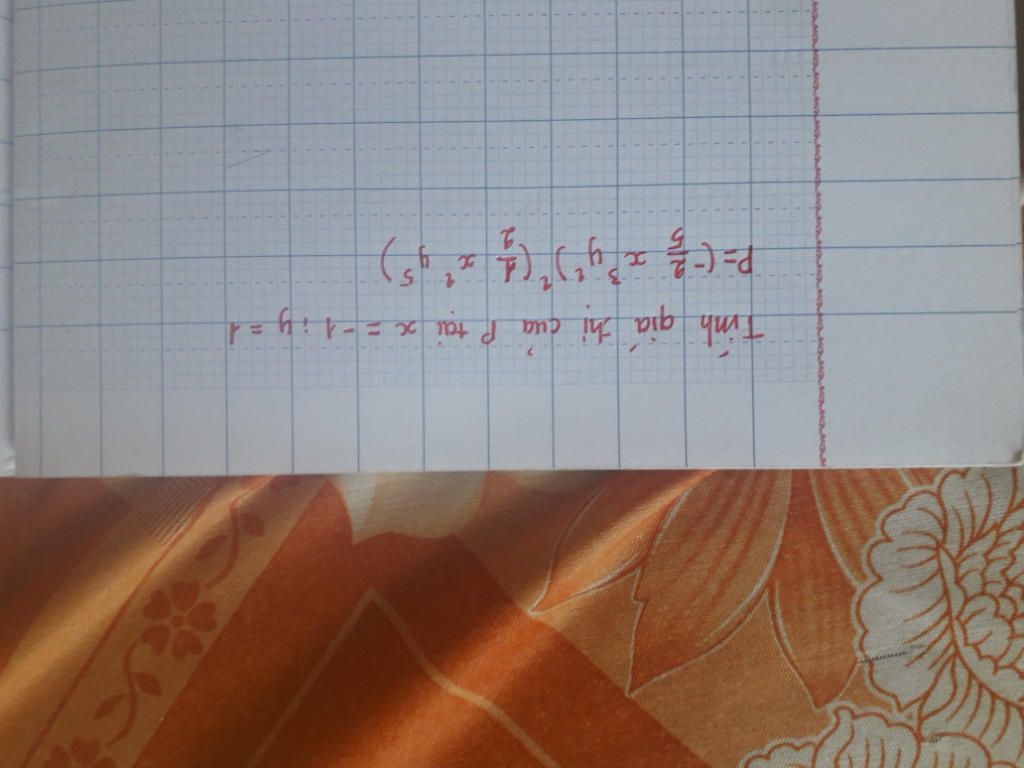 Tính giá thị của P tại x = -1 ; y = 1
P = (-2/5 x³ y²)² (1/2 x² y⁵)